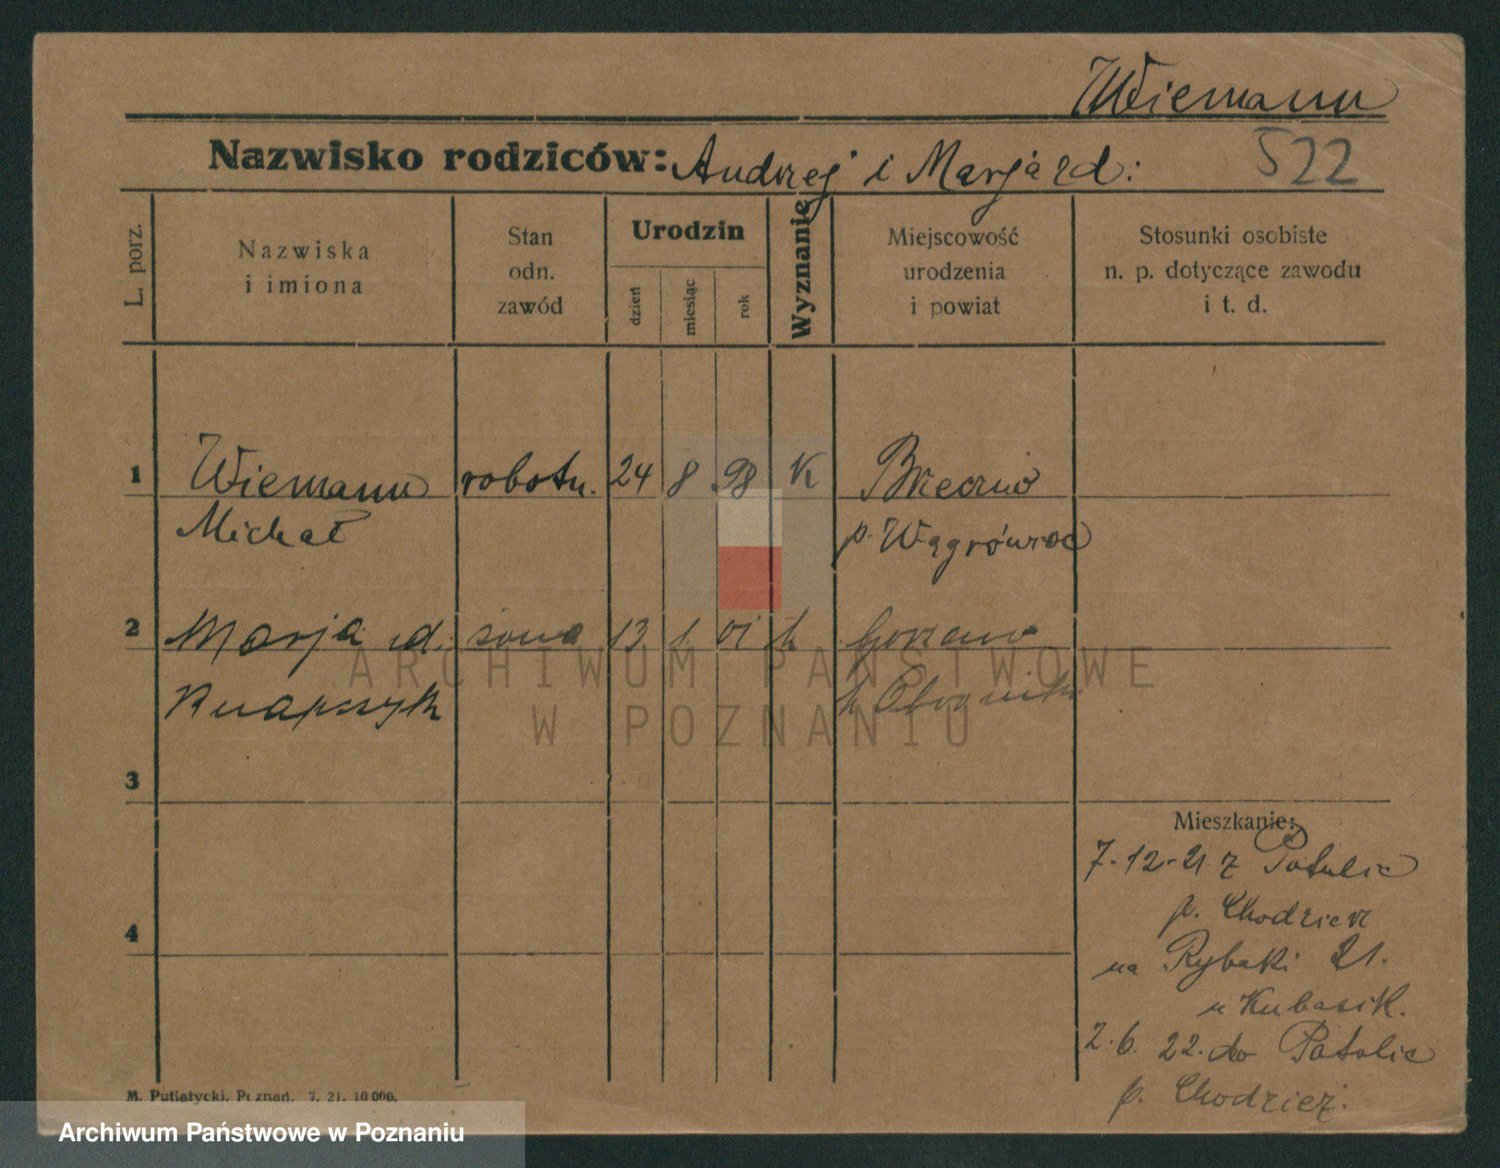 Wiemann
Nazwisko rodziców: Andrzej i Marja zd:
522
L. porz.
Nazwiska
i imiona
Stan
odn.
zawód
Urodzin
dzień
miesiąc
rok
Wyznanie
Miejscowość
urodzenia
i powiat
Stosunki osobiste
n. p. dotyczące zawodu
i t. d.
1 Wiemann robotn. 24 8 98 K
Michał p. Wągrówiec
2 Marja zd. żona 13 1 01 k
Knapszyk
3
4
Mieszkanie:
7.12.21 z Potulic
p. Chodzież
na Rybaki 21.
u Kubasik.
2.6.22. do Potulic
p. Chodzież.
M. Putiatycki, Poznań. 7. 21. 10 000.
ARCHIWUM PAŃSTWOWE
W POZNANIU
Archiwum Państwowe w Poznaniu